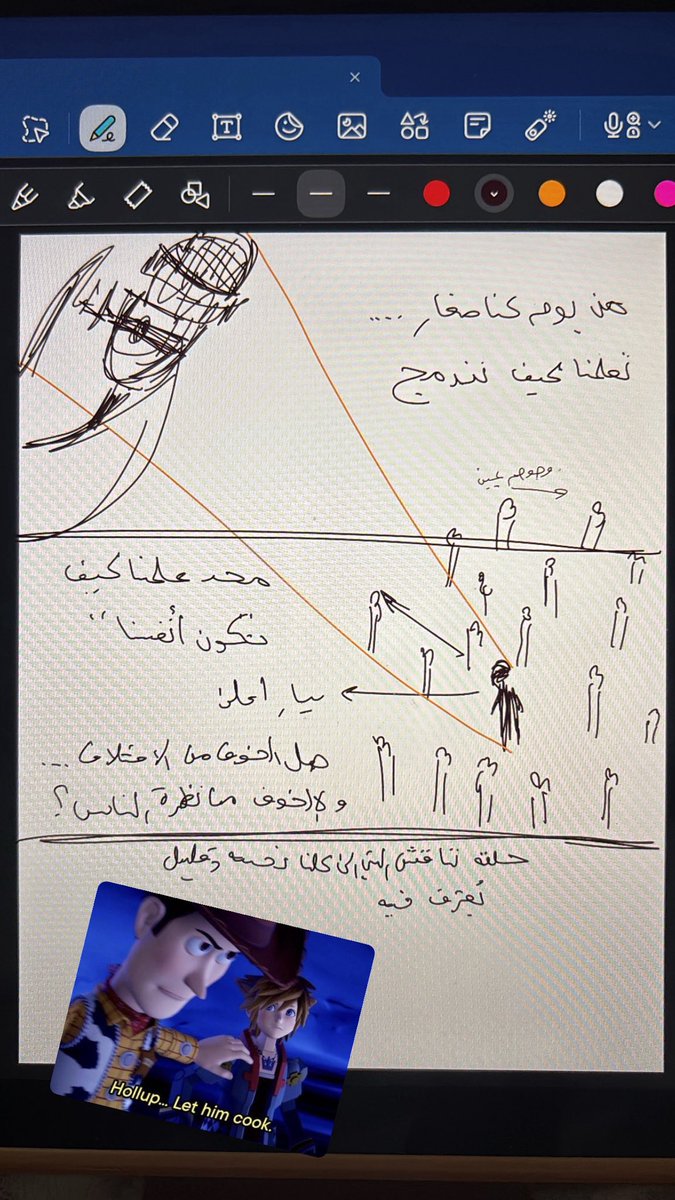 من يوم كنا صغار ....
تعلمنا كيف نندمج
وجوههم يمين
محد علمنا كيف
نكون أنفسنا “
يسار أعلى
هل الخوف من الاختلاف ...
ولا الخوف من نظرة الناس؟
حلقه تناقش الشي الي كلنا نحسه وقليل
يعترف فيه
Hollup... Let him cook.